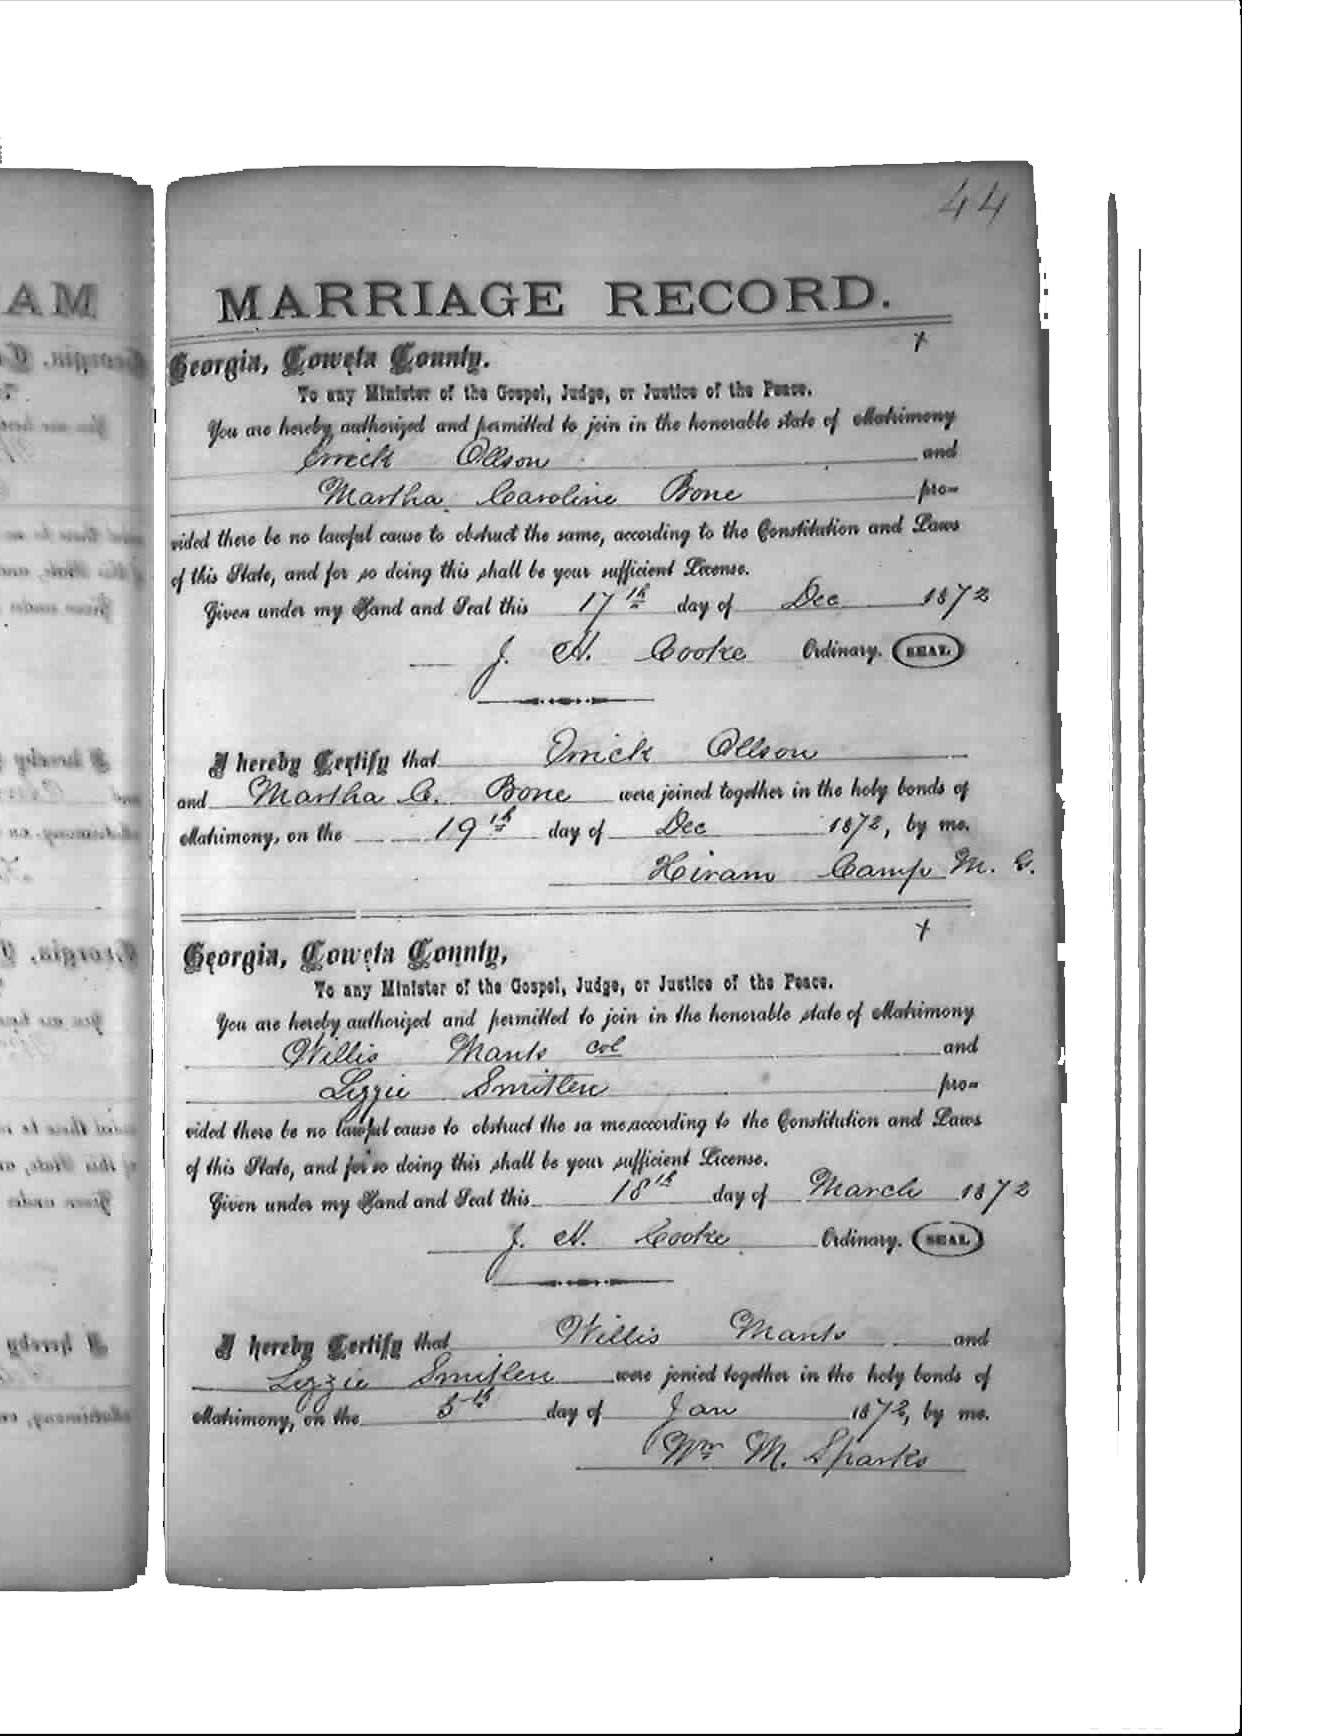 44
MARRIAGE RECORD.
Georgia, Coweta County.
To any Minister of the Gospel, Judge, or Justice of the Peace.
You are hereby authorized and permitted to join in the honorable state of Matrimony
Errick Ollson and
Martha Caroline Bone pro-
vided there be no lawful cause to obstruct the same, according to the Constitution and Laws
of this State, and for so doing this shall be your sufficient License.
Given under my Hand and Seal this 17th day of Dec 1872
J. H. Cooke Ordinary. SEAL
I hereby Certify that Errick Ollson
and Martha C. Bone were joined together in the holy bonds of
Matrimony, on the 19th day of Dec 1872, by me.
Hiram Camp M. G.
Georgia, Coweta County,
To any Minister of the Gospel, Judge, or Justice of the Peace.
You are hereby authorized and permitted to join in the honorable state of Matrimony
Willis Mants col and
Lizzie Smitten pro-
vided there be no lawful cause to obstruct the sa me, according to the Constitution and Laws
of this State, and for so doing this shall be your sufficient License.
Given under my Hand and Seal this 18th day of March 1872
J. H. Cooke Ordinary. SEAL
I hereby Certify that Willis Mants and
Lizzie Smitten were jonied together in the holy bonds of
Matrimony, on the 5th day of Jan 1872, by me.
Wm M. Sparks